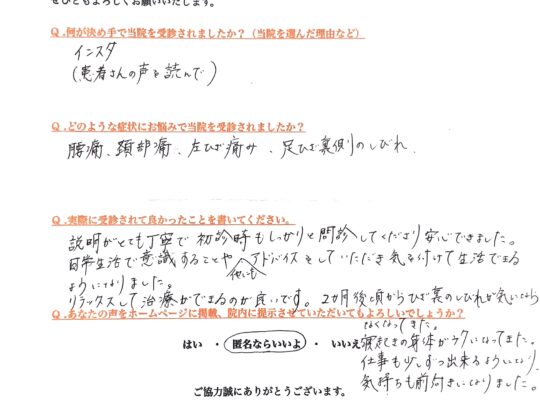 ぜひともよろしくお願いいたします。
Q.何が決め手で当院を受診されましたか?(当院を選んだ理由など)
インスタ
(患者さんの声を読んで)
Q.どのような症状にお悩みで当院を受診されましたか?
腰痛、頚部痛、左ひざ痛み、足ひざ裏側のしびれ
Q.実際に受診されて良かったことを書いてください。
説明がとても丁寧で初診時もしっかりと問診してくださり安心できました。
日常生活で意識することや他にもアドバイスをしていただき気を付けて生活できる
ようになりました。
リラックスして治療ができるのが良いです。2カ月後頃からひざ裏のしびれが気にならなくなってきた。
Q.あなたの声をホームページに掲載、院内に提示させていただいてもよろしいでしょうか?
はい ・ 匿名ならいいよ ・ いいえ
寝起きの身体がラクになってました。
仕事も少しずつ出来るようになり、
気持ちも前向きになりました。
ご協力誠にありがとうございます。